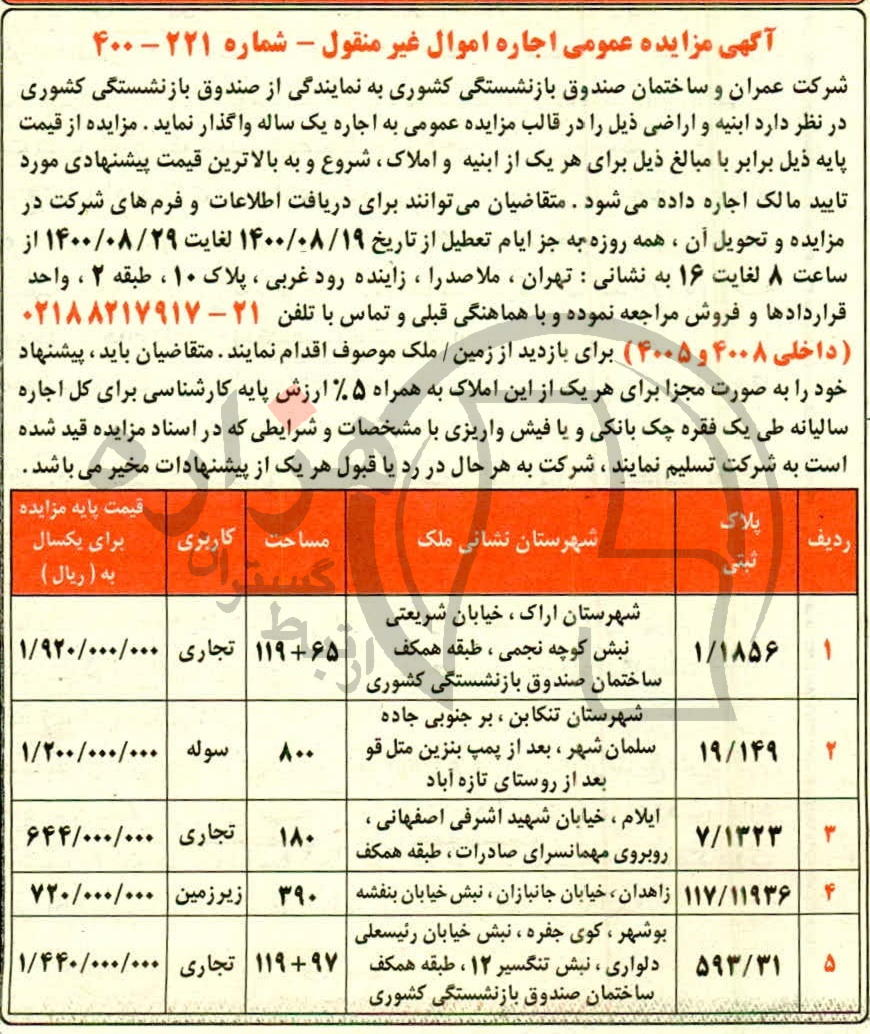 آگهی مزایده عمومی اجاره اموال غیر منقول – شماره ۲۲۱ – ۴۰۰
شرکت عمران و ساختمان صندوق بازنشستگی کشوری به نمایندگی از صندوق بازنشستگی کشوری
در نظر دارد ابنیه و اراضی ذیل را در قالب مزایده عمومی به اجاره یک ساله واگذار نماید . مزایده از قیمت
پایه ذیل برابر با مبالغ ذیل برای هر یک از ابنیه و املاک ، شروع و به بالاترین قیمت پیشنهادی مورد
تایید مالک اجاره داده می‌شود . متقاضیان می‌توانند برای دریافت اطلاعات و فرم‌های شرکت در
مزایده و تحویل آن ، همه روزه به جز ایام تعطیل از تاریخ ۱۴۰۰/۰۸/۱۹ لغایت ۱۴۰۰/۰۸/۲۹ از
ساعت ۸ لغایت ۱۶ به نشانی : تهران ، ملاصدرا ، زاینده رود غربی ، پلاک ۱۰ ، طبقه ۲ ، واحد
قراردادها و فروش مراجعه نموده و با هماهنگی قبلی و تماس با تلفن ۲۱ – ۰۲۱۸۸۲۱۷۹۱۷
( داخلی ۴۰۰۸ و ۴۰۰۵ ) برای بازدید از زمین / ملک موصوف اقدام نمایند . متقاضیان باید ، پیشنهاد
خود را به صورت مجزا برای هر یک از این املاک به همراه ۵٪ ارزش پایه کارشناسی برای کل اجاره
سالیانه طی یک فقره چک بانکی و یا فیش واریزی با مشخصات و شرایطی که در اسناد مزایده قید شده
است به شرکت تسلیم نمایند ، شرکت به هر حال در رد یا قبول هر یک از پیشنهادات مخیر می باشد .
ردیف	پلاک ثبتی	شهرستان نشانی ملک	مساحت	کاربری	قیمت پایه مزایده برای یکسال به ( ریال )
۱	۱/۱۸۵۶	شهرستان اراک ، خیابان شریعتی نبش کوچه نجمی ، طبقه همکف ساختمان صندوق بازنشستگی کشوری	۱۱۹+۶۵	تجاری	۱/۹۲۰/۰۰۰/۰۰۰
۲	۱۹/۱۴۹	شهرستان تنکابن ، بر جنوبی جاده سلمان شهر ، بعد از پمپ بنزین متل قو بعد از روستای تازه آباد	۸۰۰	سوله	۱/۲۰۰/۰۰۰/۰۰۰
۳	۷/۱۳۲۳	ایلام ، خیابان شهید اشرفی اصفهانی ، روبروی مهمانسرای صادرات ، طبقه همکف	۱۸۰	تجاری	۶۴۴/۰۰۰/۰۰۰
۴	۱۱۷/۱۱۹۳۶	زاهدان ، خیابان جانبازان ، نبش خیابان بنفشه	۳۹۰	زیرزمین	۷۲۰/۰۰۰/۰۰۰
۵	۵۹۳/۳۱	بوشهر ، کوی جفره ، نبش خیابان رئیسعلی دلواری ، نبش تنگسیر ۱۲ ، طبقه همکف ساختمان صندوق بازنشستگی کشوری	۱۱۹+۹۷	تجاری	۱/۴۴۰/۰۰۰/۰۰۰
هزاره
گستران
ارتباط